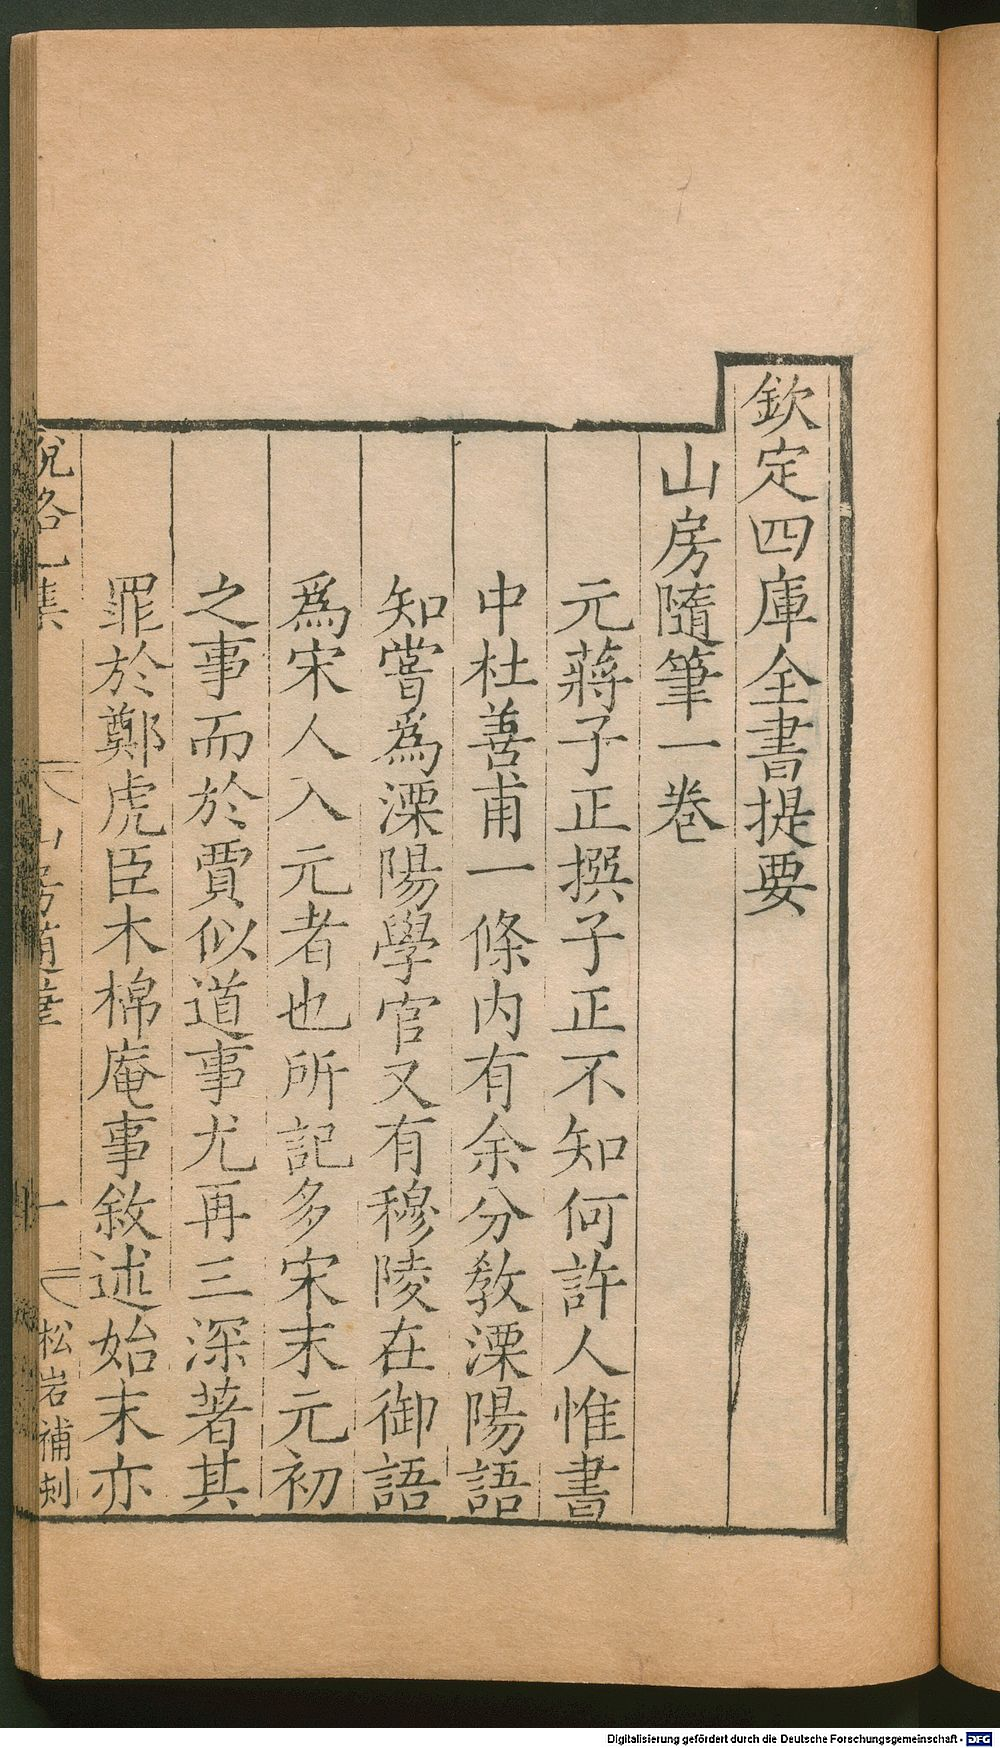 欽定四庫全書提要
山房隨筆一卷
元蔣子正撰子正不知何許人惟書
中杜善甫一條内有余分敎溧陽語
知嘗爲溧陽學官又有穆陵在御語
爲宋人入元者也所記多宋末元初
之事而於賈似道事尤再三深著其
罪於鄭虎臣木棉庵事敘述始末亦
說
集
山房隨筆
一
松岩補刻
Digitalisierung gefördert durch die Deutsche Forschungsgemeinschaft - DFG